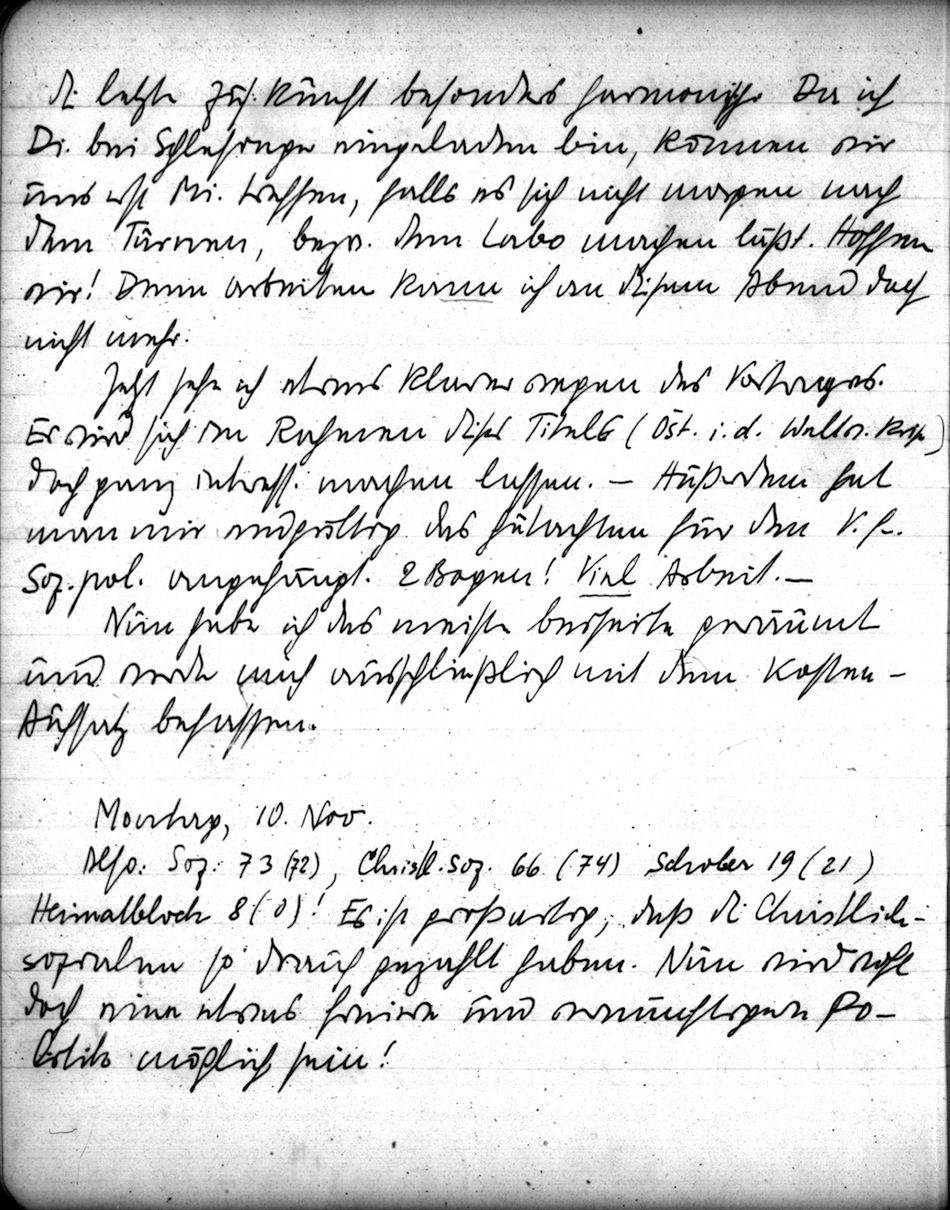 die letzte Zus.kunft besonders harmonisch. Da ich
Di. bei Schlesinger eingeladen bin, können wir
uns erst Mi. treffen, falls es sich nicht morgen nach
dem Turnen, bezw. dem Labo machen läßt. Hoffen
wir! Denn arbeiten kann ich an diesem Abend doch
nicht mehr.
Jetzt sehe ich etwas klarer wegen des Vortrages.
Er wird sich im Rahmen dieses Titels (Öst. i. d. Weltw. Kris)
doch ganz interess. machen lassen. — Außerdem hat
man mir endgültig das Gutachten für den V. f.
Soz. pol. angehängt. 2 Bogen! Viel Arbeit. —
Nun habe ich das meiste beiseite geräumt
und werde mich ausschließlich mit dem Kosten-
Aufsatz befassen.
Montag, 10. Nov.
Also: Soz: 73 (72), Christl. soz. 66 (74) Schober 19 (21)
Heimatblock 8 (0)! Es ist großartig, daß die Christlich-
sozialen so drauf gezahlt haben. Nun wird wohl
doch eine etwas freiere und vernünftigere Po-
litik möglich sein!